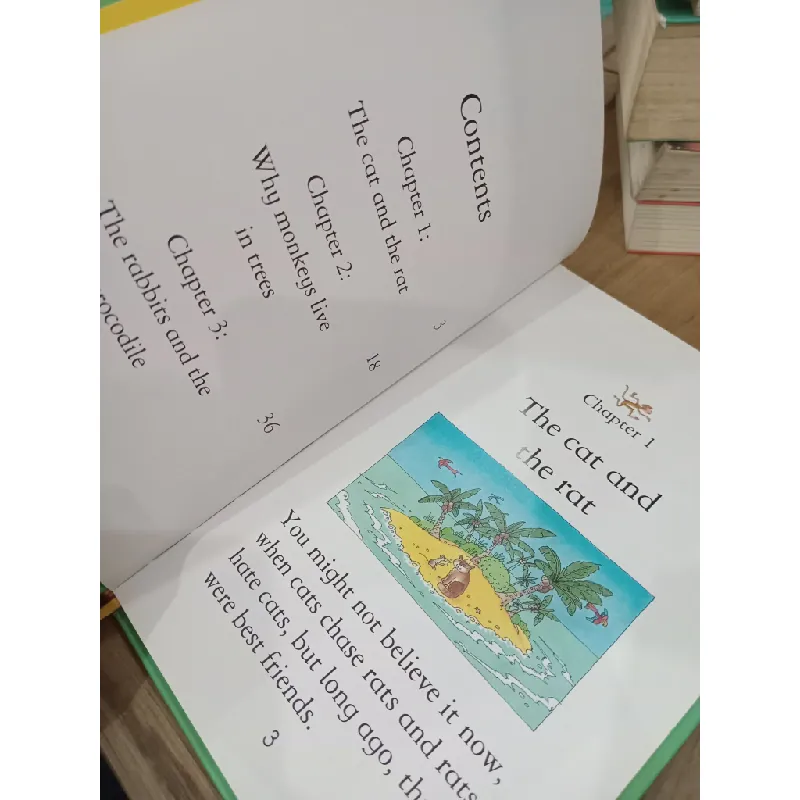 Contents
Chapter 1:
The cat and the rat 3
Chapter 2:
Why monkeys live
in trees 18
Chapter 3:
The rabbits and the
rocodile 36
Chapter 1
The cat and
the rat
You might not believe it now,
when cats chase rats and rats
hate cats, but long ago, th
were best friends.
3